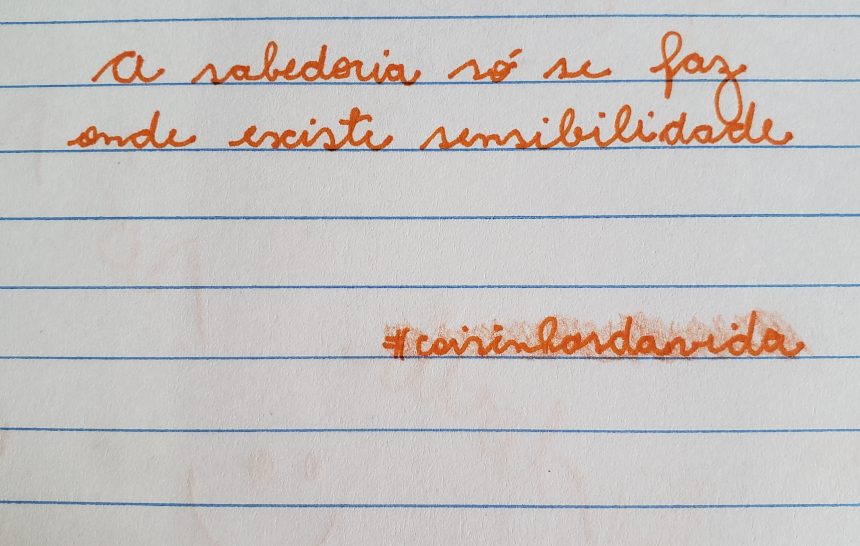 A sabedoria só se faz
onde existe sensibilidade
#coisinhasdavida